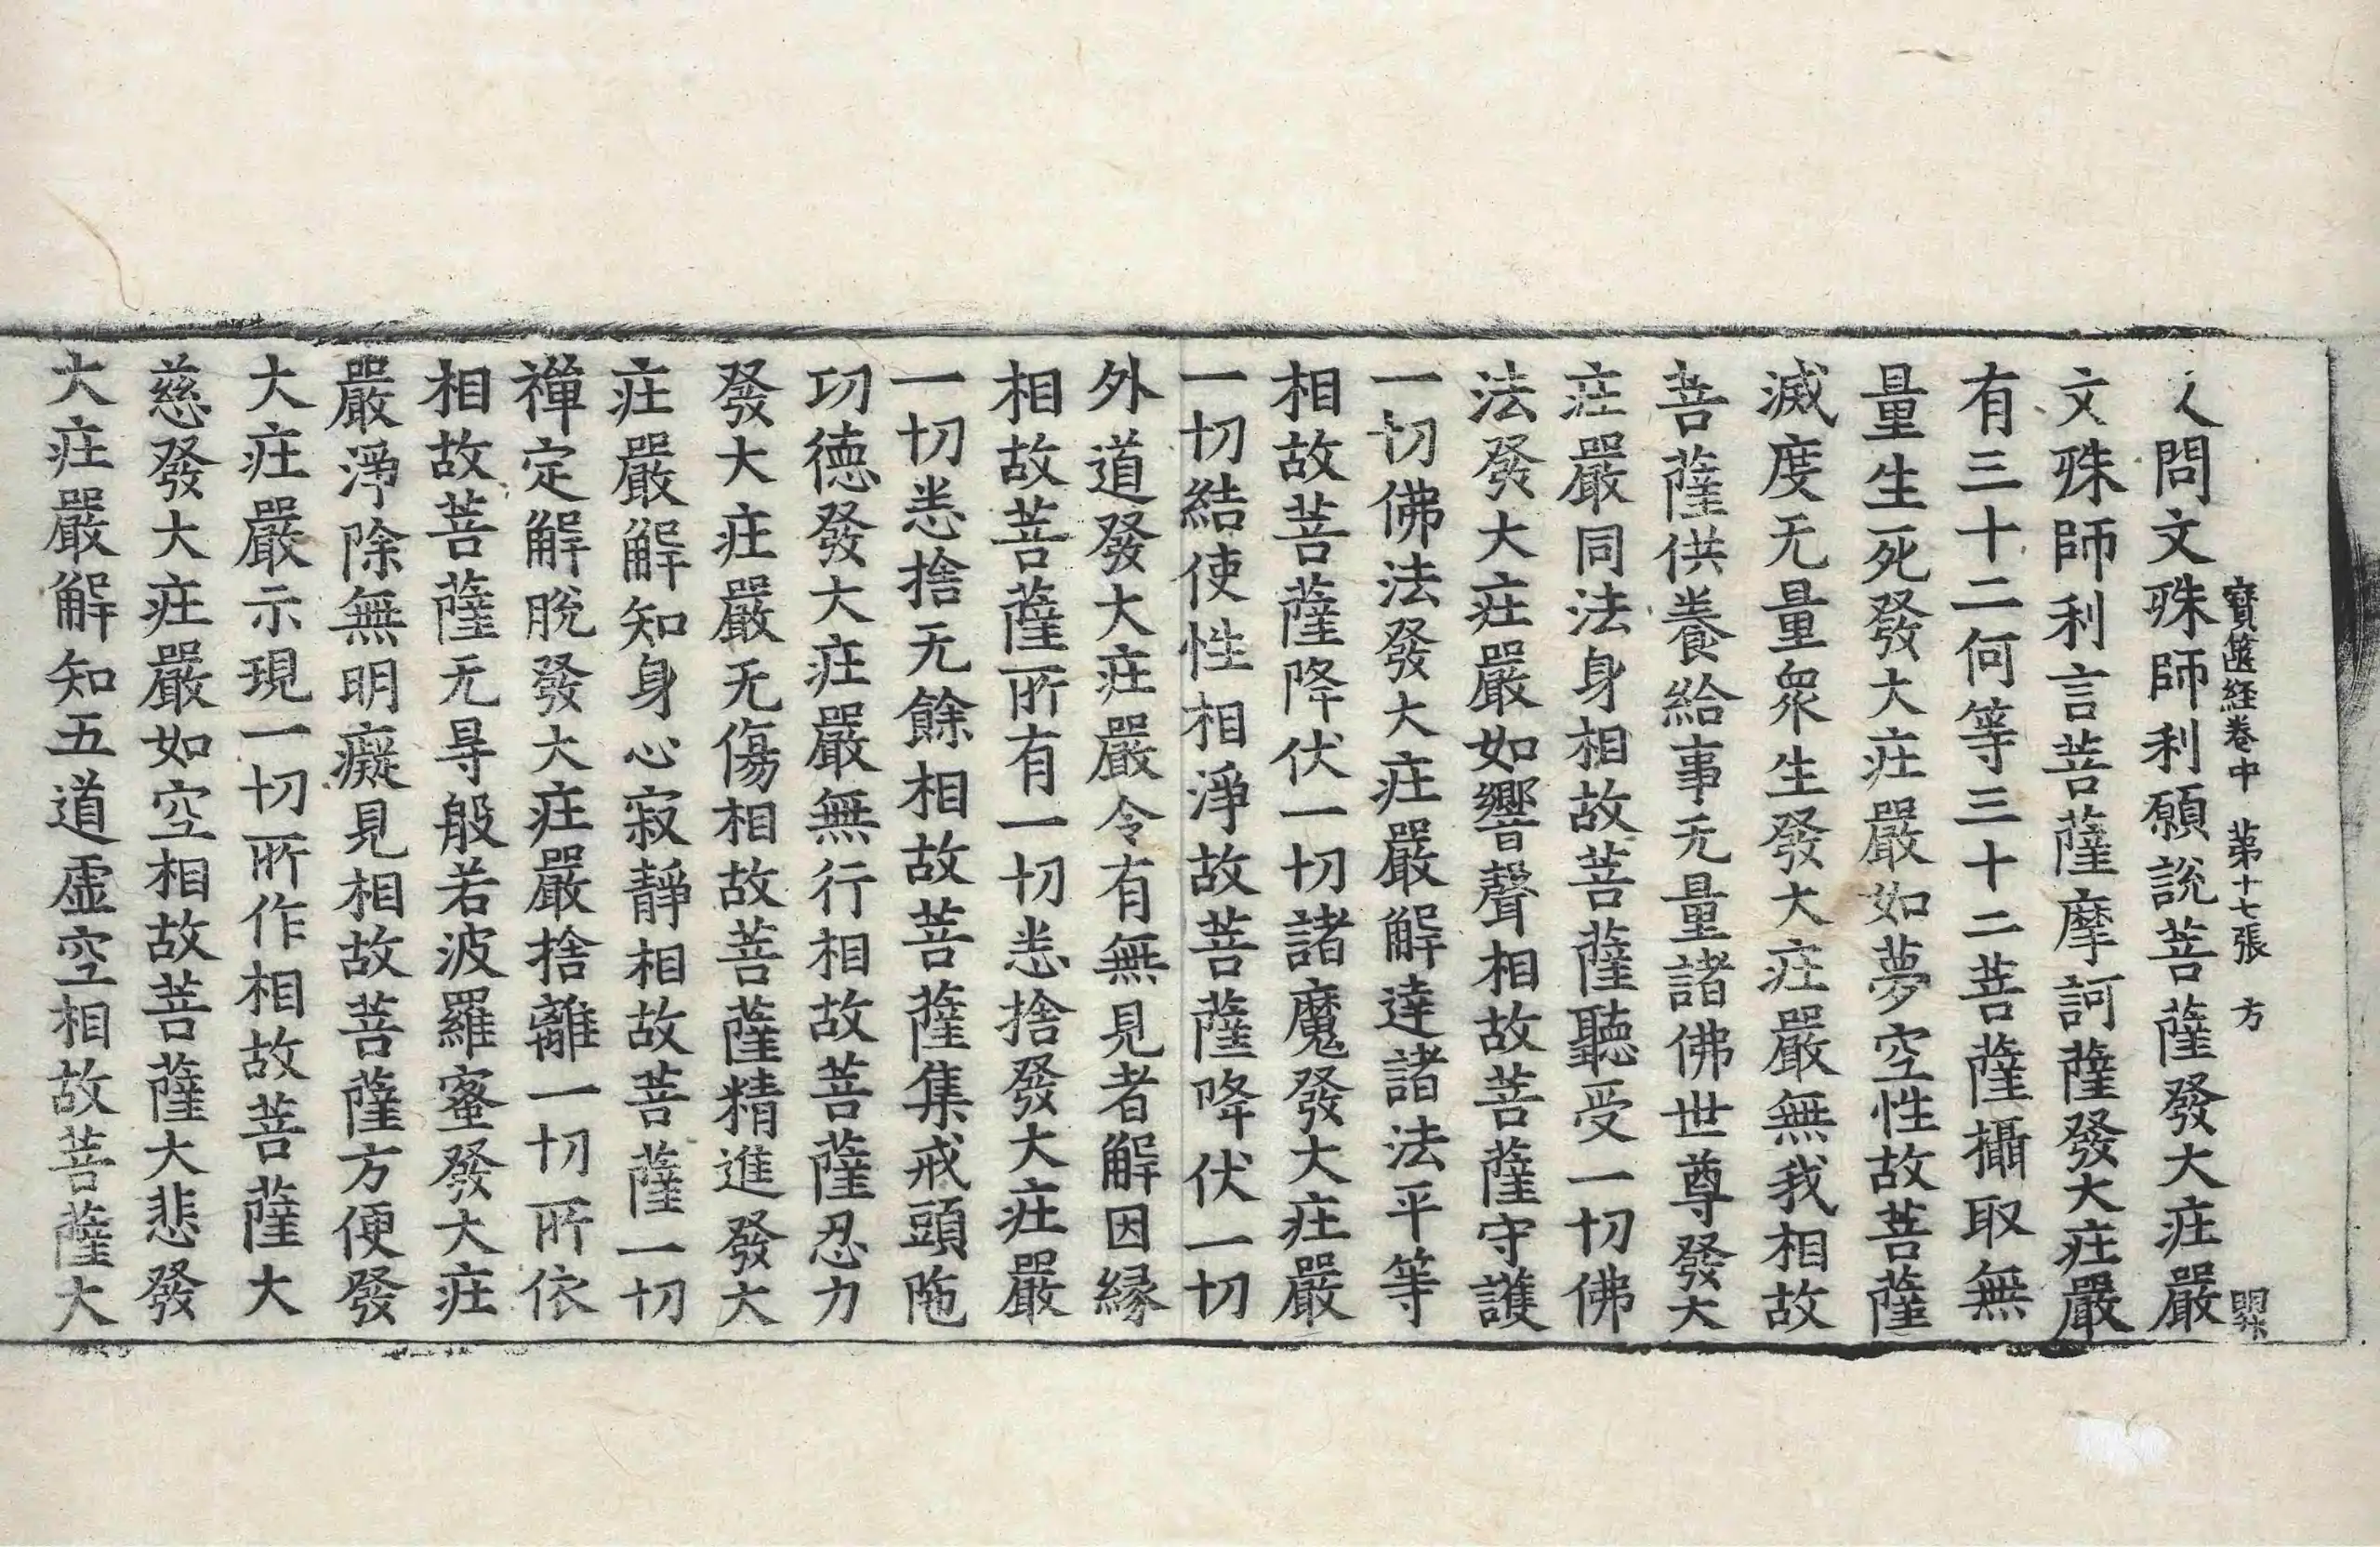 人問文殊師利願説菩薩發大庄嚴
寶篋経卷中 苐十七張 方
文殊師利言菩薩摩訶薩發大庄嚴
有三十二何等三十二菩薩攝取無
量生死發大庄嚴如夢空性故菩薩
滅度无量衆生發大庄嚴無我相故
菩薩供養給事无量諸佛世尊發大
庄嚴同法身相故菩薩聽受一切佛
法發大庄嚴如響聲相故菩薩守護
一切佛法發大庄嚴解達諸法平等
相故菩薩降伏一切諸魔發大庄嚴
一切結使性相淨故菩薩降伏一切
外道發大庄嚴令有無見者解因縁
相故菩薩所有一切悉捨發大庄嚴
一切悉捨无餘相故菩薩集戒頭陁
功德發大庄嚴無行相故菩薩忍力
發大庄嚴无傷相故菩薩精進發大
庄嚴解知身心寂靜相故菩薩一切
禪定解脫發大庄嚴捨離一切所依
相故菩薩无㝵般若波羅蜜發大庄
嚴淨除無明癡見相故菩薩方便發
大庄嚴示現一切所作相故菩薩大
慈發大庄嚴如空相故菩薩大悲發
大庄嚴解知五道虛空相故菩薩大